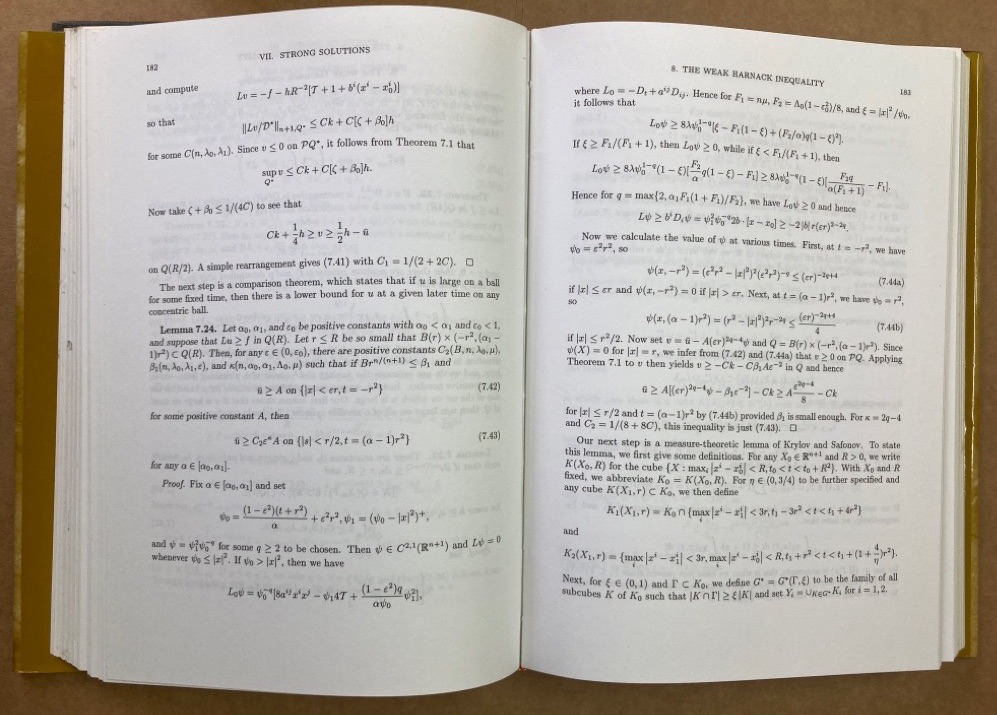 182
VII. STRONG SOLUTIONS
and compute
Lv = −f − hR⁻²[𝒯 + 1 + bⁱ(xⁱ − x₀ⁱ)]
so that
‖Lv/𝒟*‖ₙ₊₁,Q* ≤ Ck + C[ζ + β₀]h
for some C(n, λ₀, λ₁). Since v ≤ 0 on 𝒫Q*, it follows from Theorem 7.1 that
sup v ≤ Ck + C[ζ + β₀]h.
Q*
Now take ζ + β₀ ≤ 1/(4C) to see that
Ck + 1/4 h ≥ v ≥ 1/2 h − ū
on Q(R/2). A simple rearrangement gives (7.41) with C₁ = 1/(2 + 2C). □
The next step is a comparison theorem, which states that if u is large on a ball
for some fixed time, then there is a lower bound for u at a given later time on any
concentric ball.
Lemma 7.24. Let α₀, α₁, and ε₀ be positive constants with α₀ < α₁ and ε₀ < 1,
and suppose that Lu ≥ f in Q(R). Let r ≤ R be so small that B(r) × (−r², (α₁ −
1)r²) ⊂ Q(R). Then, for any ε ∈ (0, ε₀), there are positive constants C₂(B, n, λ₀, μ),
β₁(n, λ₀, λ₁, ε), and κ(n, α₀, α₁, Λ₀, μ) such that if Brⁿ/⁽ⁿ⁺¹⁾ ≤ β₁ and
ū ≥ A on {|x| < εr, t = −r²} (7.42)
for some positive constant A, then
ū ≥ C₂ε^κ A on {|s| < r/2, t = (α − 1)r²} (7.43)
for any α ∈ [α₀, α₁].
Proof. Fix α ∈ [α₀, α₁] and set
ψ₀ = (1 − ε²)(t + r²)/α + ε²r², ψ₁ = (ψ₀ − |x|²)⁺,
and ψ = ψ₁²ψ₀^{−q} for some q ≥ 2 to be chosen. Then ψ ∈ C²,¹(ℝⁿ⁺¹) and Lψ = 0
whenever ψ₀ ≤ |x|². If ψ₀ > |x|², then we have
L₀ψ = ψ₀^{−q}[8aⁱʲxⁱxʲ − ψ₁4𝒯 + (1 − ε²)q/(αψ₀) ψ₁²],
8. THE WEAK HARNACK INEQUALITY
183
where L₀ = −Dₜ + aⁱʲDᵢⱼ. Hence for F₁ = nμ, F₂ = Λ₀(1−ε₀²)/8, and ξ = |x|²/ψ₀,
it follows that
L₀ψ ≥ 8λψ₀^{1−q}[ξ − F₁(1 − ξ) + (F₂/α)q(1 − ξ)²].
If ξ ≥ F₁/(F₁ + 1), then L₀ψ ≥ 0, while if ξ < F₁/(F₁ + 1), then
L₀ψ ≥ 8λψ₀^{1−q}(1 − ξ)[F₂/α q(1 − ξ) − F₁] ≥ 8λψ₀^{1−q}(1 − ξ)[F₂q/(α(F₁ + 1)) − F₁].
Hence for q = max{2, α₁F₁(1 + F₁)/F₂}, we have L₀ψ ≥ 0 and hence
Lψ ≥ bⁱDᵢψ = ψ₁²ψ₀^{−q}2b · [x − x₀] ≥ −2|b|r(εr)^{−2q}.
Now we calculate the value of ψ at various times. First, at t = −r², we have
ψ₀ = ε²r², so
ψ(x, −r²) = (ε²r² − |x|²)²(ε²r²)^{−q} ≤ (εr)^{−2q+4} (7.44a)
if |x| ≤ εr and ψ(x, −r²) = 0 if |x| > εr. Next, at t = (α − 1)r², we have ψ₀ = r²,
so
ψ(x, (α − 1)r²) = (r² − |x|²)²r^{−2q} ≤ (εr)^{−2q+4}/4 (7.44b)
if |x| ≤ r²/2. Now set v = ū − A(εr)^{2q−4}ψ and Q = B(r) × (−r², (α − 1)r²). Since
ψ(X) = 0 for |x| = r, we infer from (7.42) and (7.44a) that v ≥ 0 on 𝒫Q. Applying
Theorem 7.1 to v then yields v ≥ −Ck − Cβ₁Aε⁻² in Q and hence
ū ≥ A[(εr)^{2q−4}ψ − β₁ε⁻²] − Ck ≥ A ε^{2q−4}/8 − Ck
for |x| ≤ r/2 and t = (α−1)r² by (7.44b) provided β₁ is small enough. For κ = 2q−4
and C₂ = 1/(8 + 8C), this inequality is just (7.43). □
Our next step is a measure-theoretic lemma of Krylov and Safonov. To state
this lemma, we first give some definitions. For any X₀ ∈ ℝⁿ⁺¹ and R > 0, we write
K(X₀, R) for the cube {X : maxᵢ |xⁱ − x₀ⁱ| < R, t₀ < t < t₀ + R²}. With X₀ and R
fixed, we abbreviate K₀ = K(X₀, R). For η ∈ (0, 3/4) to be further specified and
any cube K(X₁, r) ⊂ K₀, we then define
K₁(X₁, r) = K₀ ∩ {max |xⁱ − x₁ⁱ| < 3r, t₁ − 3r² < t < t₁ + 4r²}
i
and
K₂(X₁, r) = {max |xⁱ − x₁ⁱ| < 3r, max |xⁱ − x₀ⁱ| < R, t₁ + r² < t < t₁ + (1 + 4/η)r²}.
i i
Next, for ξ ∈ (0, 1) and Γ ⊂ K₀, we define G* = G*(Γ, ξ) to be the family of all
subcubes K of K₀ such that |K ∩ Γ| ≥ ξ|K| and set Yᵢ = ∪_{K∈G*}Kᵢ for i = 1, 2.